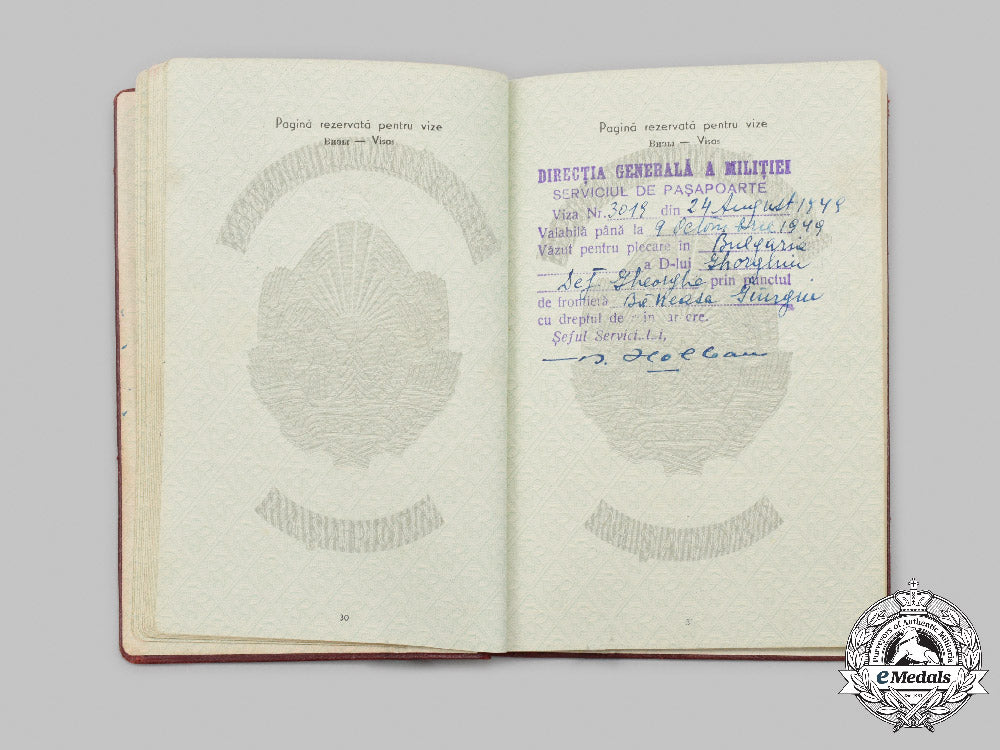 Pagină rezervată pentru vize
Визы — Visas
30
Pagină rezervată pentru vize
Визы — Visas
DIRECȚIA GENERALĂ A MILIȚIEI
SERVICIUL DE PAȘAPOARTE
Viza Nr. 3019 din 24 August 1949
Valabilă până la 9 Octombrie 1949
Văzut pentru plecare în Bulgaria
a D-lui Ghorghiu
Dej Gheorghe prin punctul
de frontieră Băneasa Giurgiu
cu dreptul de
Șeful Servici
Holban
3
Purveyors of Authentic Militaria
eMedals